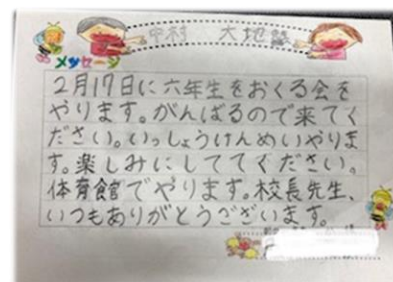 中村 大地
メッセージ
2月17日に六年生をおくる会を
やります。がんばるので来てく
ださい。いっしょうけんめいやりま
す。楽しみにしててください。
体育館でやります。校長先生、
いつもありがとうございます。